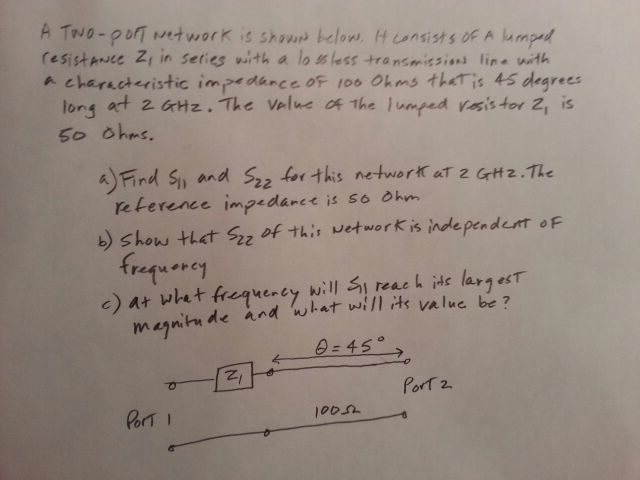 A Two-port network is shown below. It consists of A lumped
resistance Z₁ in series with a lossless transmission line with
a characteristic impedance of 100 Ohms that is 45 degrees
long at 2 GHz. The value of The lumped resistor Z₁ is
50 Ohms.
a) Find S₁₁ and S₂₂ for this network at 2 GHz. The
reference impedance is 50 Ohm
b) Show that S₂₂ of this network is independent of
frequency
c) at what frequency will S₁₁ reach its largest
magnitude and what will its value be?
θ = 45°
Z₁
Port 2
Port 1
100Ω